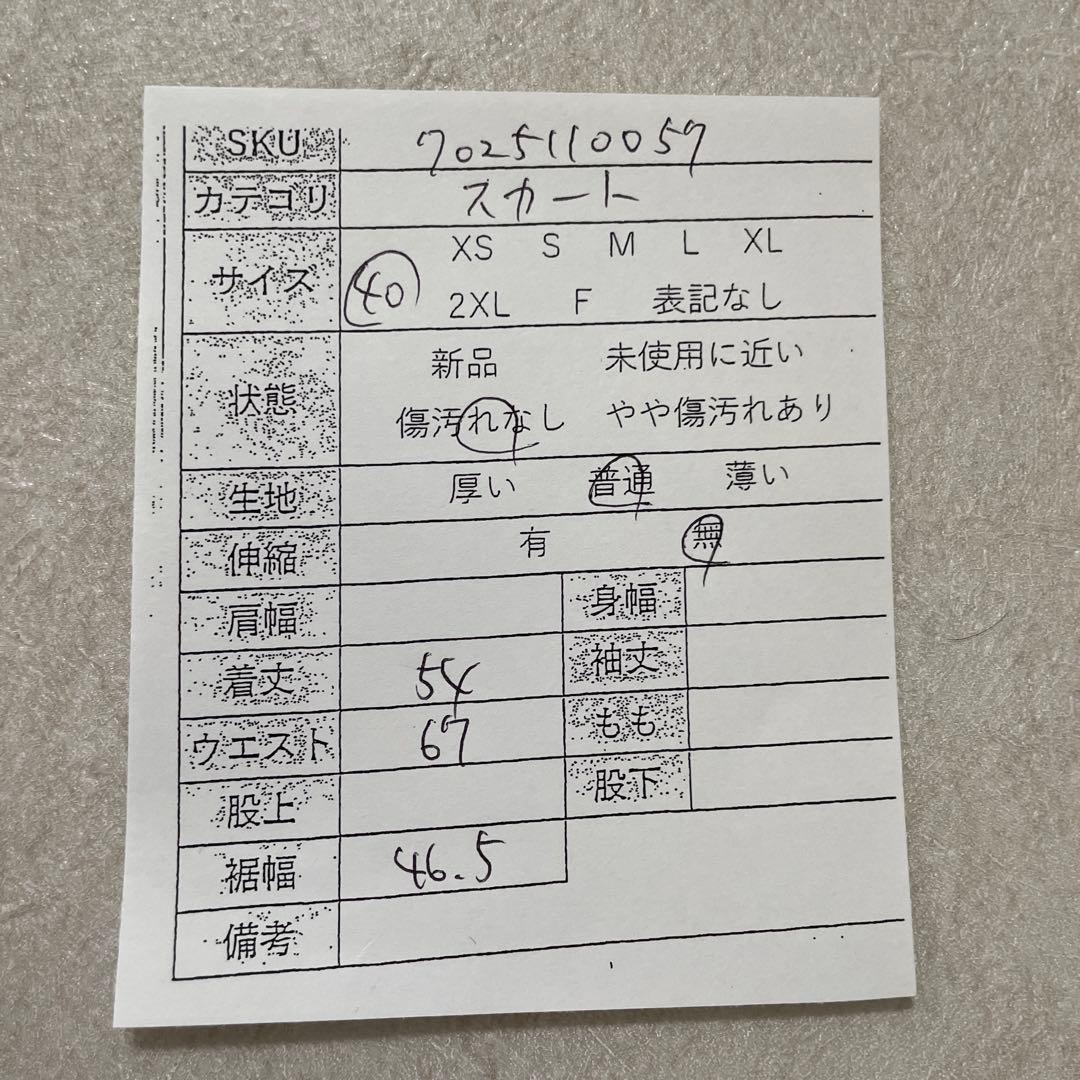 SKU 7025110057
カテゴリ スカート
XS S M L XL
サイズ 40
2XL F 表記なし
新品 未使用に近い
状態
傷汚れなし やや傷汚れあり
生地 厚い 普通 薄い
伸縮 有 無
肩幅 身幅
着丈 54 袖丈
ウエスト 67 もも
股上 股下
裾幅 46.5
備考